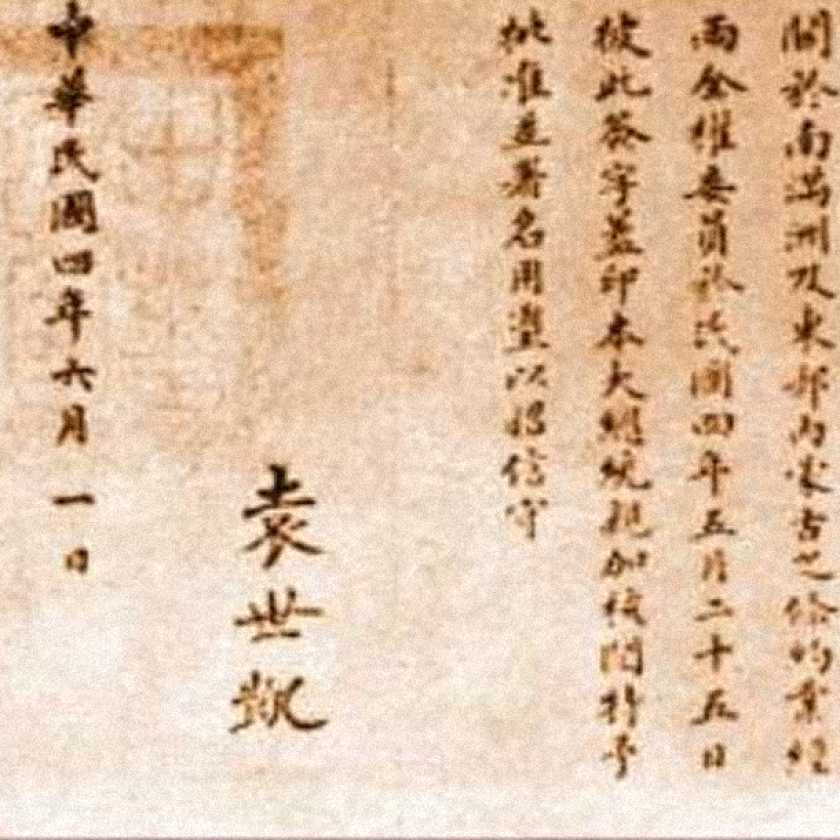 關於南滿洲及東部內蒙古之條約業經
兩全權委員於民國四年五月二十五日
彼此簽字蓋印本大總統親加核閱特予
批准並署名用璽以昭信守
袁世凱
中華民國四年六月一日